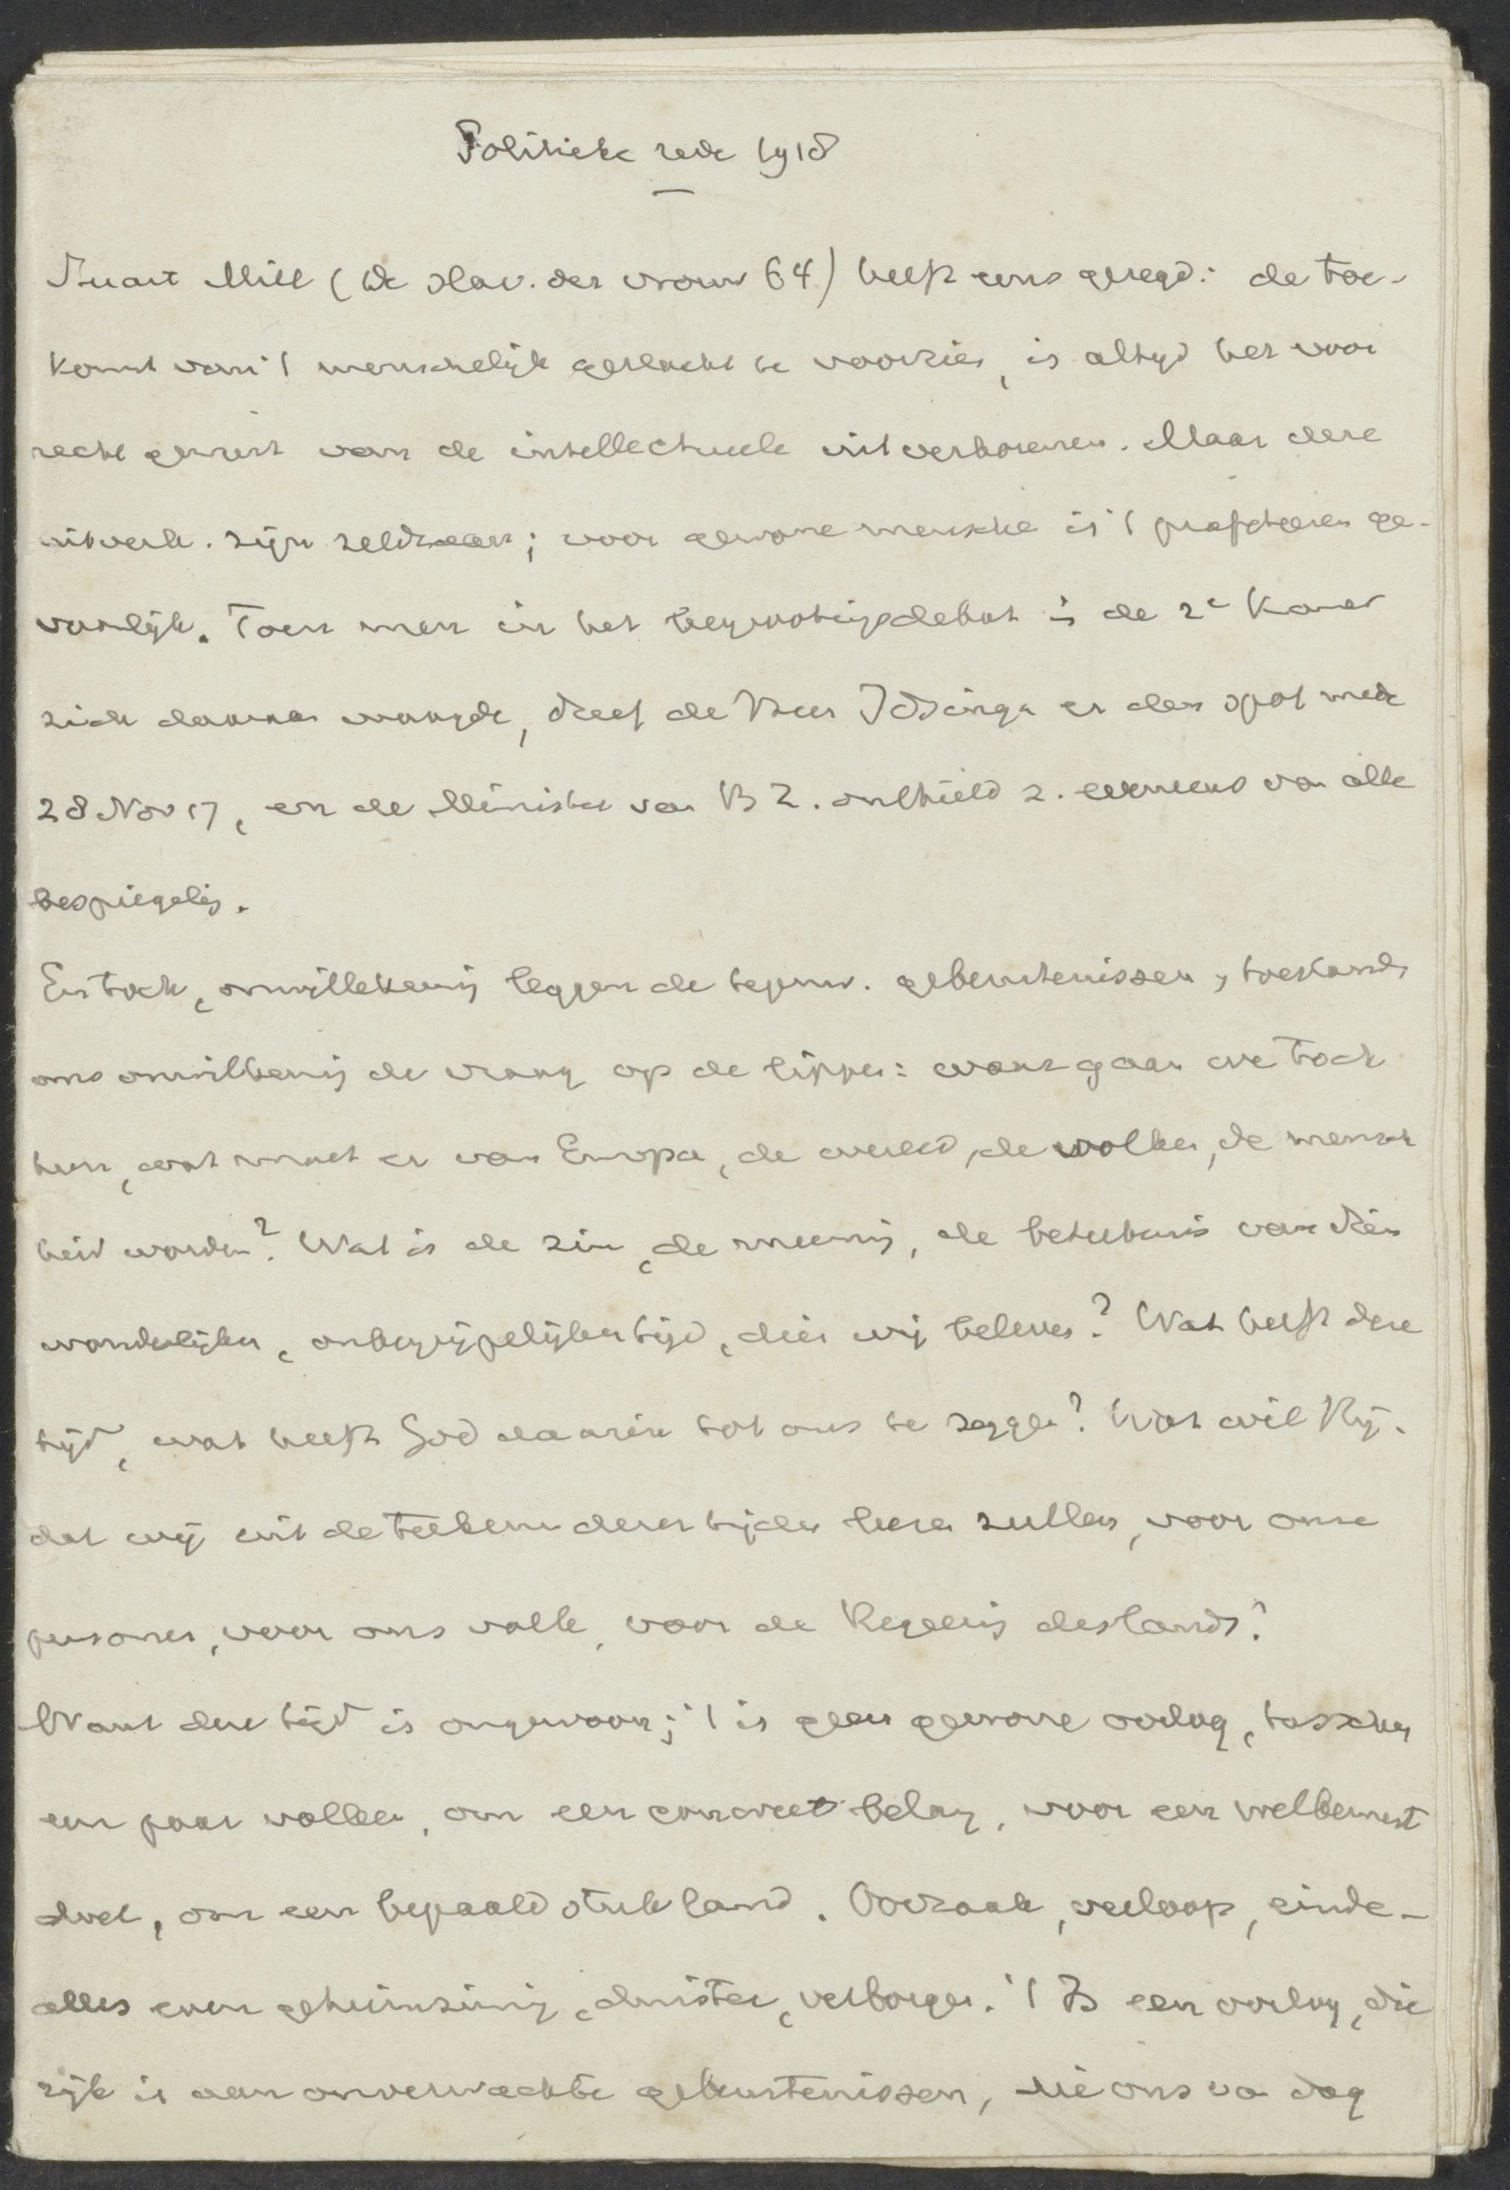 Politieke rede 1918
Stuart Mill (De slav. der vrouw 64) heeft eens gezegd: de toe-
komst van 't menschelijk geslacht te voorzien, is altijd het voor
recht geweest van de intellectueele uitverkorenen. Maar deze
uitverk. zijn zeldzaam; voor gewone menschen is 't profeteeren ge-
vaarlijk. Toen men in het begrootingsdebat in de 2e Kamer
zich daaraan waagde, dreef de Heer Idsinga er den spot mede
28 Nov 17, en de Minister van B Z. onthield z. eveneens van alle
bespiegeling.
En toch, onwillekeurig leggen de tegenw. gebeurtenissen, toestanden
ons onwilkeurig de vraag op de lippen: waar gaan we toch
heen, wat moet er van Europa, de wereld, de volken, de mensch
heid worden? Wat is de zin, de meening, de beteekenis van dien
wonderlijken, onbegrijpelijken tijd, dien wij beleven? Wat heeft deze
tijd, wat heeft God daarin tot ons te zeggen? Wat wil Hij,
dat wij uit de teekenen dezer tijden leeren zullen, voor onze
personen, voor ons volk, voor de Regeering des lands?
Want deze tijd is ongewoon; 't is geen gewone oorlog, tusschen
een paar volken, om een concreet belang, voor een welbewust
doel, om een bepaald stuk land. Oorzaak, verloop, einde -
alles even geheimzinnig, duister, verborgen. 't Is een oorlog, die
rijk is aan onverwachte gebeurtenissen, die ons van dag